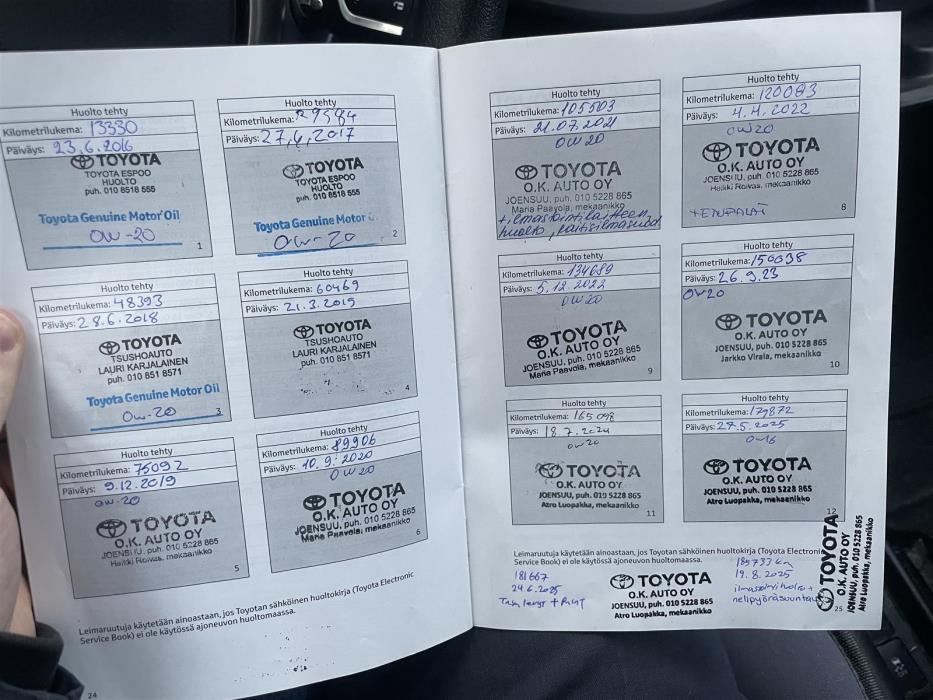 Huolto tehty
Kilometrilukema: 13330
Päiväys: 23.6.2016
TOYOTA
TOYOTA ESPOO
HUOLTO
puh. 010 8518 555
Toyota Genuine Motor Oil
0W-20
1
Huolto tehty
Kilometrilukema: 29584
Päiväys: 27.4.2017
TOYOTA
TOYOTA ESPOO
HUOLTO
puh. 010 8518 555
Toyota Genuine Motor
0W-20
2
Huolto tehty
Kilometrilukema: 48393
Päiväys: 28.6.2018
TOYOTA
TSUSHOAUTO
LAURI KARJALAINEN
puh. 010 851 8571
Toyota Genuine Motor Oil
0W-20
3
Huolto tehty
Kilometrilukema: 60469
Päiväys: 21.3.2019
TOYOTA
TSUSHOAUTO
LAURI KARJALAINEN
puh. 010 851 8571
4
Huolto tehty
Kilometrilukema: 75092
Päiväys: 9.12.2019
0W-20
TOYOTA
O.K. AUTO OY
JOENSUU, puh. 010 5228 865
Heikki Roivas, mekaanikko
5
Huolto tehty
Kilometrilukema: 89906
Päiväys: 10.9.2020
0W20
TOYOTA
O.K. AUTO OY
JOENSUU, puh. 010 5228 865
Maria Paavola, mekaanikko
6
Leimaruutuja käytetään ainoastaan, jos Toyotan sähköinen huoltokirja (Toyota Electronic
Service Book) ei ole käytössä ajoneuvon huoltomaassa.
24
Huolto tehty
Kilometrilukema: 105503
Päiväys: 21.07.2021
0W20
TOYOTA
O.K. AUTO OY
JOENSUU, puh. 010 5228 865
Maria Paavola, mekaanikko
+ilmastointilaitteen
huolto, raitisilmasuod
Huolto tehty
Kilometrilukema: 120083
Päiväys: 4.4.2022
0W20
TOYOTA
O.K. AUTO OY
JOENSUU, puh. 010 5228 865
Heikki Roivas, mekaanikko
+ETUPALAT
8
Huolto tehty
Kilometrilukema: 134689
Päiväys: 5.12.2022
0W20
TOYOTA
O.K. AUTO OY
JOENSUU, puh. 010 5228 865
Maria Paavola, mekaanikko
9
Huolto tehty
Kilometrilukema: 150038
Päiväys: 26.9.23
0W20
TOYOTA
O.K. AUTO OY
JOENSUU, puh. 010 5228 865
Jarkko Virala, mekaanikko
10
Huolto tehty
Kilometrilukema: 165098
Päiväys: 18.7.2024
0W20
TOYOTA
O.K. AUTO OY
JOENSUU, puh. 010 5228 865
Atro Luopakka, mekaanikko
11
Huolto tehty
Kilometrilukema: 179872
Päiväys: 27.5.2025
0W16
TOYOTA
O.K. AUTO OY
JOENSUU, puh. 010 5228 865
Atro Luopakka, mekaanikko
12
Leimaruutuja käytetään ainoastaan, jos Toyotan sähköinen huoltokirja (Toyota Electronic
Service Book) ei ole käytössä ajoneuvon huoltomaassa.
181667
24.6.2025
TOYOTA
O.K. AUTO OY
JOENSUU, puh. 010 5228 865
Atro Luopakka, mekaanikko
185733 km
19.8.2025
ilmastointihuolto +
nelipyöräsuuntaus
TOYOTA
O.K. AUTO OY
JOENSUU, puh. 010 5228 865
Atro Luopakka, mekaanikko
25